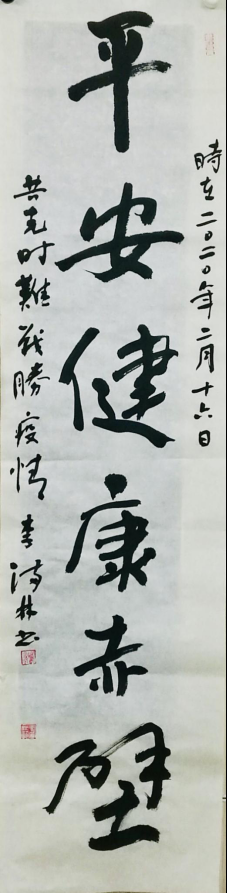 時在二〇二〇年二月十六日
平安健康赤壁
共克时難战勝疫情 李涛林书